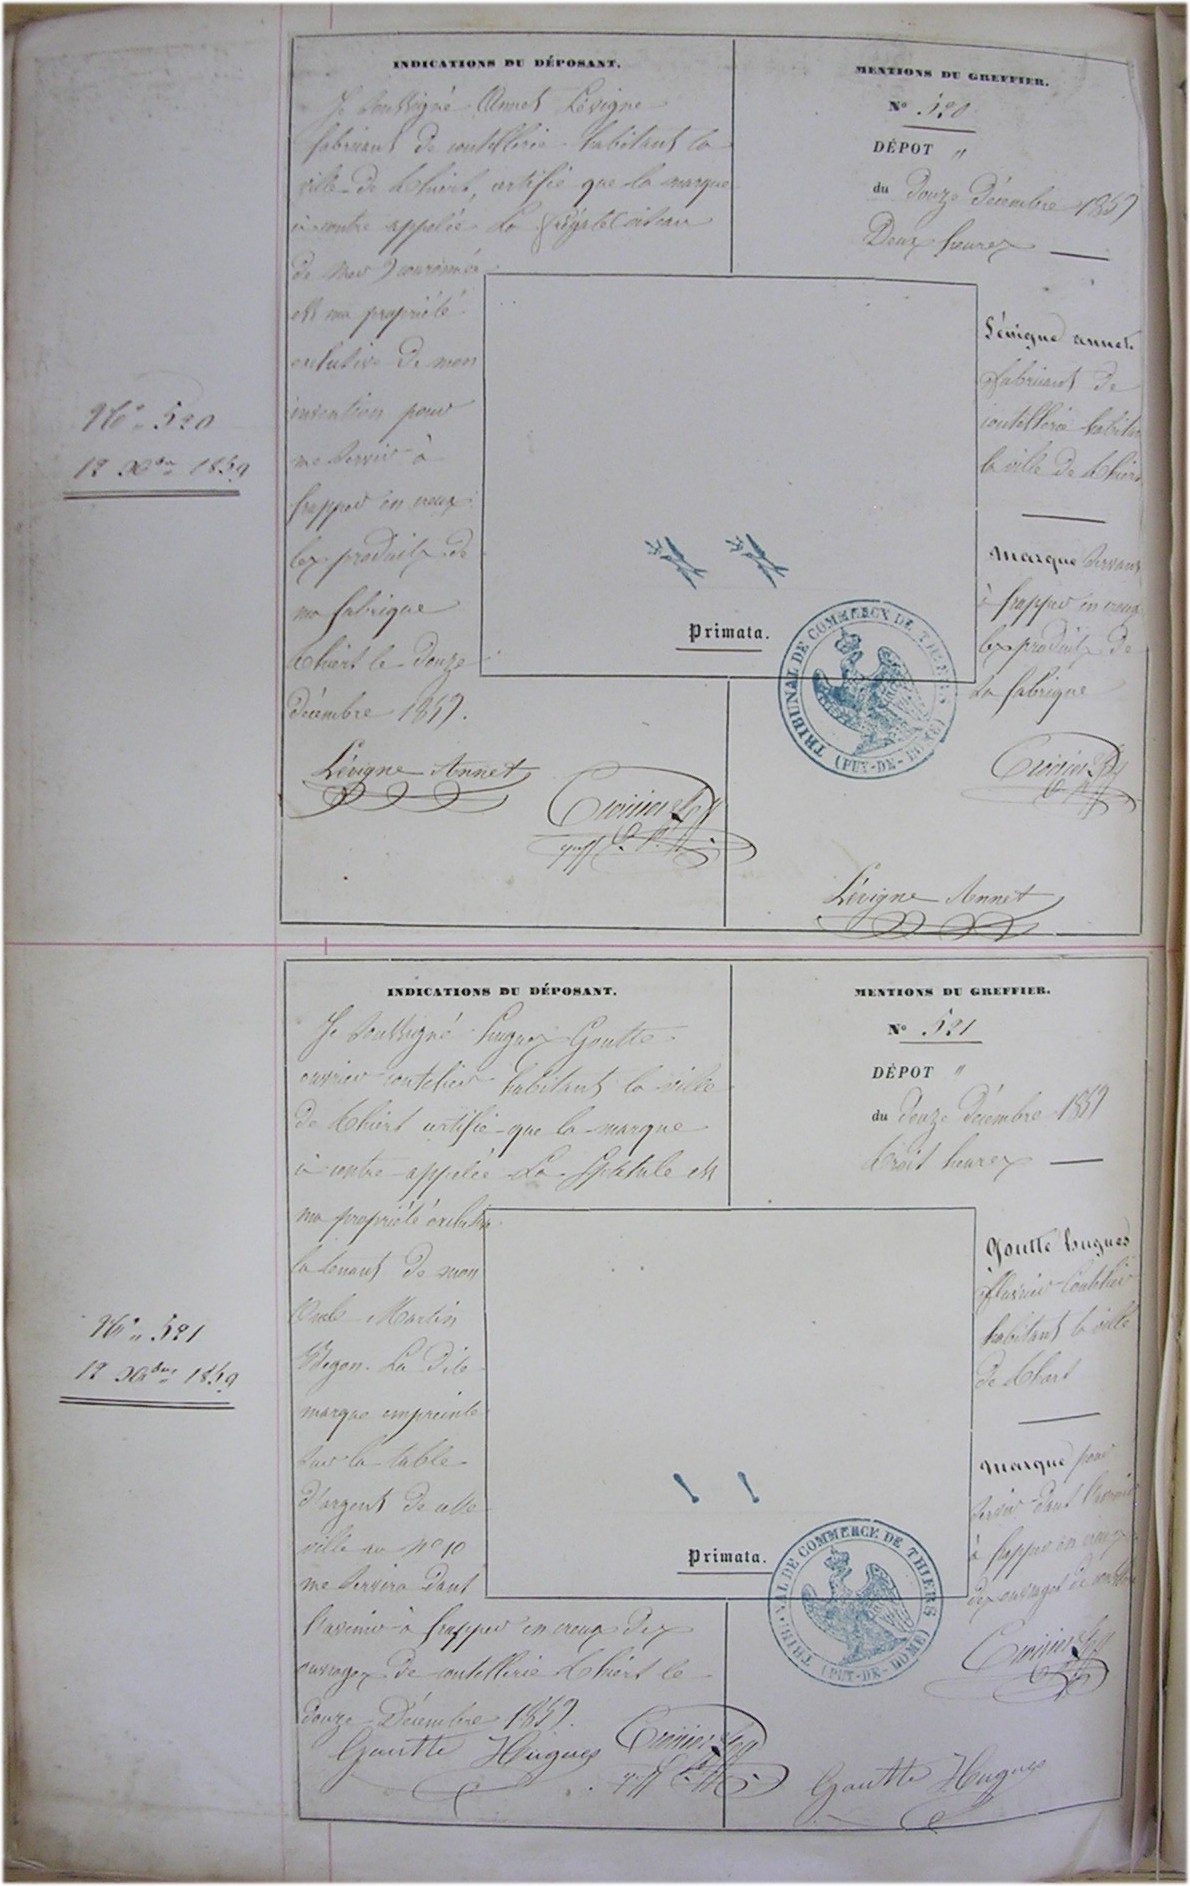 INDICATIONS DU DÉPOSANT.
Je soussigné Annet Lévigne
fabricant de coutellerie habitant la
ville de Thiers, certifie que la marque
ci contre appelée La frégate (oiseau
de mer) couronnée
est ma propriété
exclusive de mon
invention pour
me servir à
frapper en creux
les produits de
ma fabrique
Thiers le douze
décembre 1859.
Lévigne Annet
MENTIONS DU GREFFIER.
N° 520
DÉPOT "
du douze Décembre 1859
Deux heures
Lévigne annet
fabricant de
coutellerie habitant
la ville de Thiers
Marque servant
à frapper en creux
les produits de
sa fabrique
Lévigne Annet
N° 520
12 Xbre 1859
Primata.
TRIBUNAL DE COMMERCE DE THIERS
(PUY-DE-DOME)
INDICATIONS DU DÉPOSANT.
Je soussigné hugues Goutte
ouvrier coutelier habitant la ville
de Thiers certifie que la marque
ci contre appelée La Spatule est
ma propriété exclusive
la tenant de mon
Oncle Martin
La dite
marque empreinte
sur la table
d'argent de cette
ville au N° 10
me servira dans
l'avenir à frapper en creux des
ouvrages de coutellerie Thiers le
douze Décembre 1859.
Gouttte Hugues
MENTIONS DU GREFFIER.
N° 521
DÉPOT "
du douze décembre 1859
trois heures
Goutte hugues
Ouvrier Coutelier
habitant la ville
de Thiers
Marque pour
servir dans l'avenir
à frapper en creux
des ouvrages de coutellerie
Gouttte Hugues
N° 521
12 Xbre 1859
Primata.
TRIBUNAL DE COMMERCE DE THIERS
(PUY-DE-DOME)